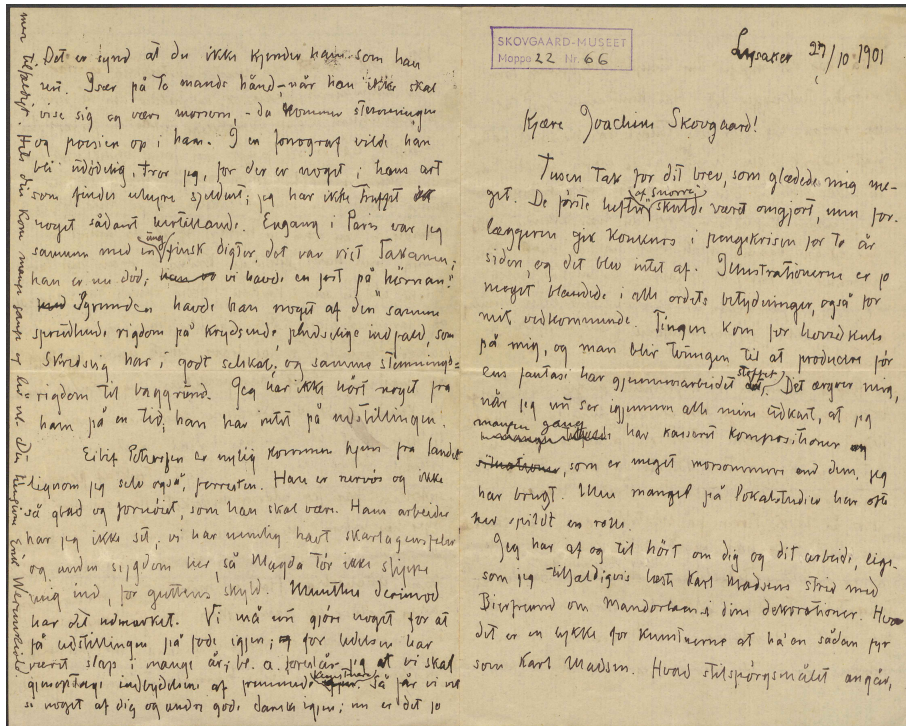 SKOVGAARD-MUSEET
Mappe 22 Nr. 66
Lysaker 27/10 1901
Kjære Joachim Skovgaard!
Tusen Tak for dit brev, som glædede mig me-
get. De første hefter af Snorre skulde været omgjort, men for-
læggeren gik konkurs i pengekrisen for to år
siden, og det blev intet af. Illustrationerne er jo
meget blandede i alle ordets betydninger, også for
mit vedkommende. Tingen kom for hovedkuls
på mig, og man blir tvungen til at producere før
ens fantasi har gjennemarbeidet stoffet. Det ærgrer mig,
når jeg nu ser igjennem alle mine udkast, at jeg
mangen gang har kasseret kompositioner
som er meget morsommere end dem, jeg
har brugt. Men mangel på lokalstudier har ofte
her spildt en rolle.
Jeg har af og til hört om dig og dit arbeide, lige-
som jeg tilfældigvis læste Karl Madsens strid med
Bierfreund om Mandorlaen i dine dekorationer. Hvor
det er en lykke for kunstnerne at ha' en sådan fyr
som Karl Madsen. Hvad stilspörgsmålet angår,
Det er synd at du ikke kjender ham som han
er. Især på to mands hånd, når han ikke skal
vise sig og være morsom, - da kommer stemningen
og poesien op i ham. I en fonograf vilde han
bli udödelig, tror jeg, for der er noget i hans art
som findes uhyre sjeldent; jeg har ikke truffet
noget sådant hertillande. Engang i Paris var jeg
sammen med en ung finsk digter, det var vist Takanen;
han er nu död; vi havde en fest på "hörnan".
Igrunden havde han noget af den samme
sprudlende rigdom på krydsende, pludselige indfald, som
Skredsvig har i godt selskab; og samme stemnings-
rigdom til baggrund. Jeg har ikke hört noget fra
ham på en tid; han har intet på udstillingen.
Eilif Peterssen er nylig kommen hjem fra landet
ligesom jeg selv også, forresten. Han er nervös og ikke
så glad og fornöiet, som han skal være. Hans arbeider
har jeg ikke set, vi har nemlig havt skarlagensfeber
og anden sygdom her, så Magda tör ikke slippe
mig ind, for guttens skyld. Munthe derimod
har det udmærket. Vi må nu gjöre noget for at
få udstillingen på fode igjen; for ledelsen har
været slap i mange år; bl. a. foreslår jeg at vi skal
gjenoptage indbydelsen af fremmede kunstnere. Så får vi vel
se noget af dig og andre gode danske igjen; nu er det jo
mer tilfældigt. Hils din kone mange gange og lev vel. Din hengivne Erik Werenskiold